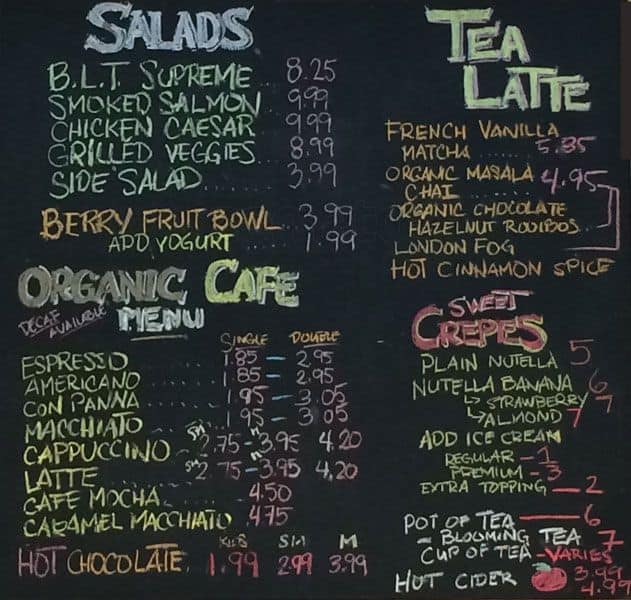 SALADS
B.L.T. SUPREME 8.25
SMOKED SALMON 9.99
CHICKEN CAESAR 9.99
GRILLED VEGGIES 8.99
SIDE SALAD 3.99
BERRY FRUIT BOWL 3.99
ADD YOGURT 1.99
ORGANIC CAFE
DECAF AVAILABLE
MENU
SINGLE DOUBLE
ESPRESSO 1.85 – 2.95
AMERICANO 1.85 – 2.95
CON PANNA 1.95 – 3.05
MACCHIATO 1.95 – 3.05
CAPPUCCINO SM 2.75 – M 3.95 4.20
LATTE SM 2.75 – 3.95 4,20
CAFE MOCHA 4.50
CARAMEL MACCHIATO 4.75
KIDS SM M
HOT CHOCOLATE 1.99 2.99 3.99
TEA
LATTE
FRENCH VANILLA
MATCHA 5.35
ORGANIC MASALA 4.95
CHAI
ORGANIC CHOCOLATE
HAZELNUT ROOIBOS
LONDON FOG
HOT CINNAMON SPICE
SWEET
CREPES
PLAIN NUTELLA 5
NUTELLA BANANA 6
↳ STRAWBERRY 7
↳ ALMOND 7
ADD ICE CREAM
REGULAR – 1
PREMIUM – 3
EXTRA TOPPING – 2
POT OF TEA – 6
– BLOOMING TEA 7
CUP OF TEA – VARIES
HOT CIDER 3.99
4.99